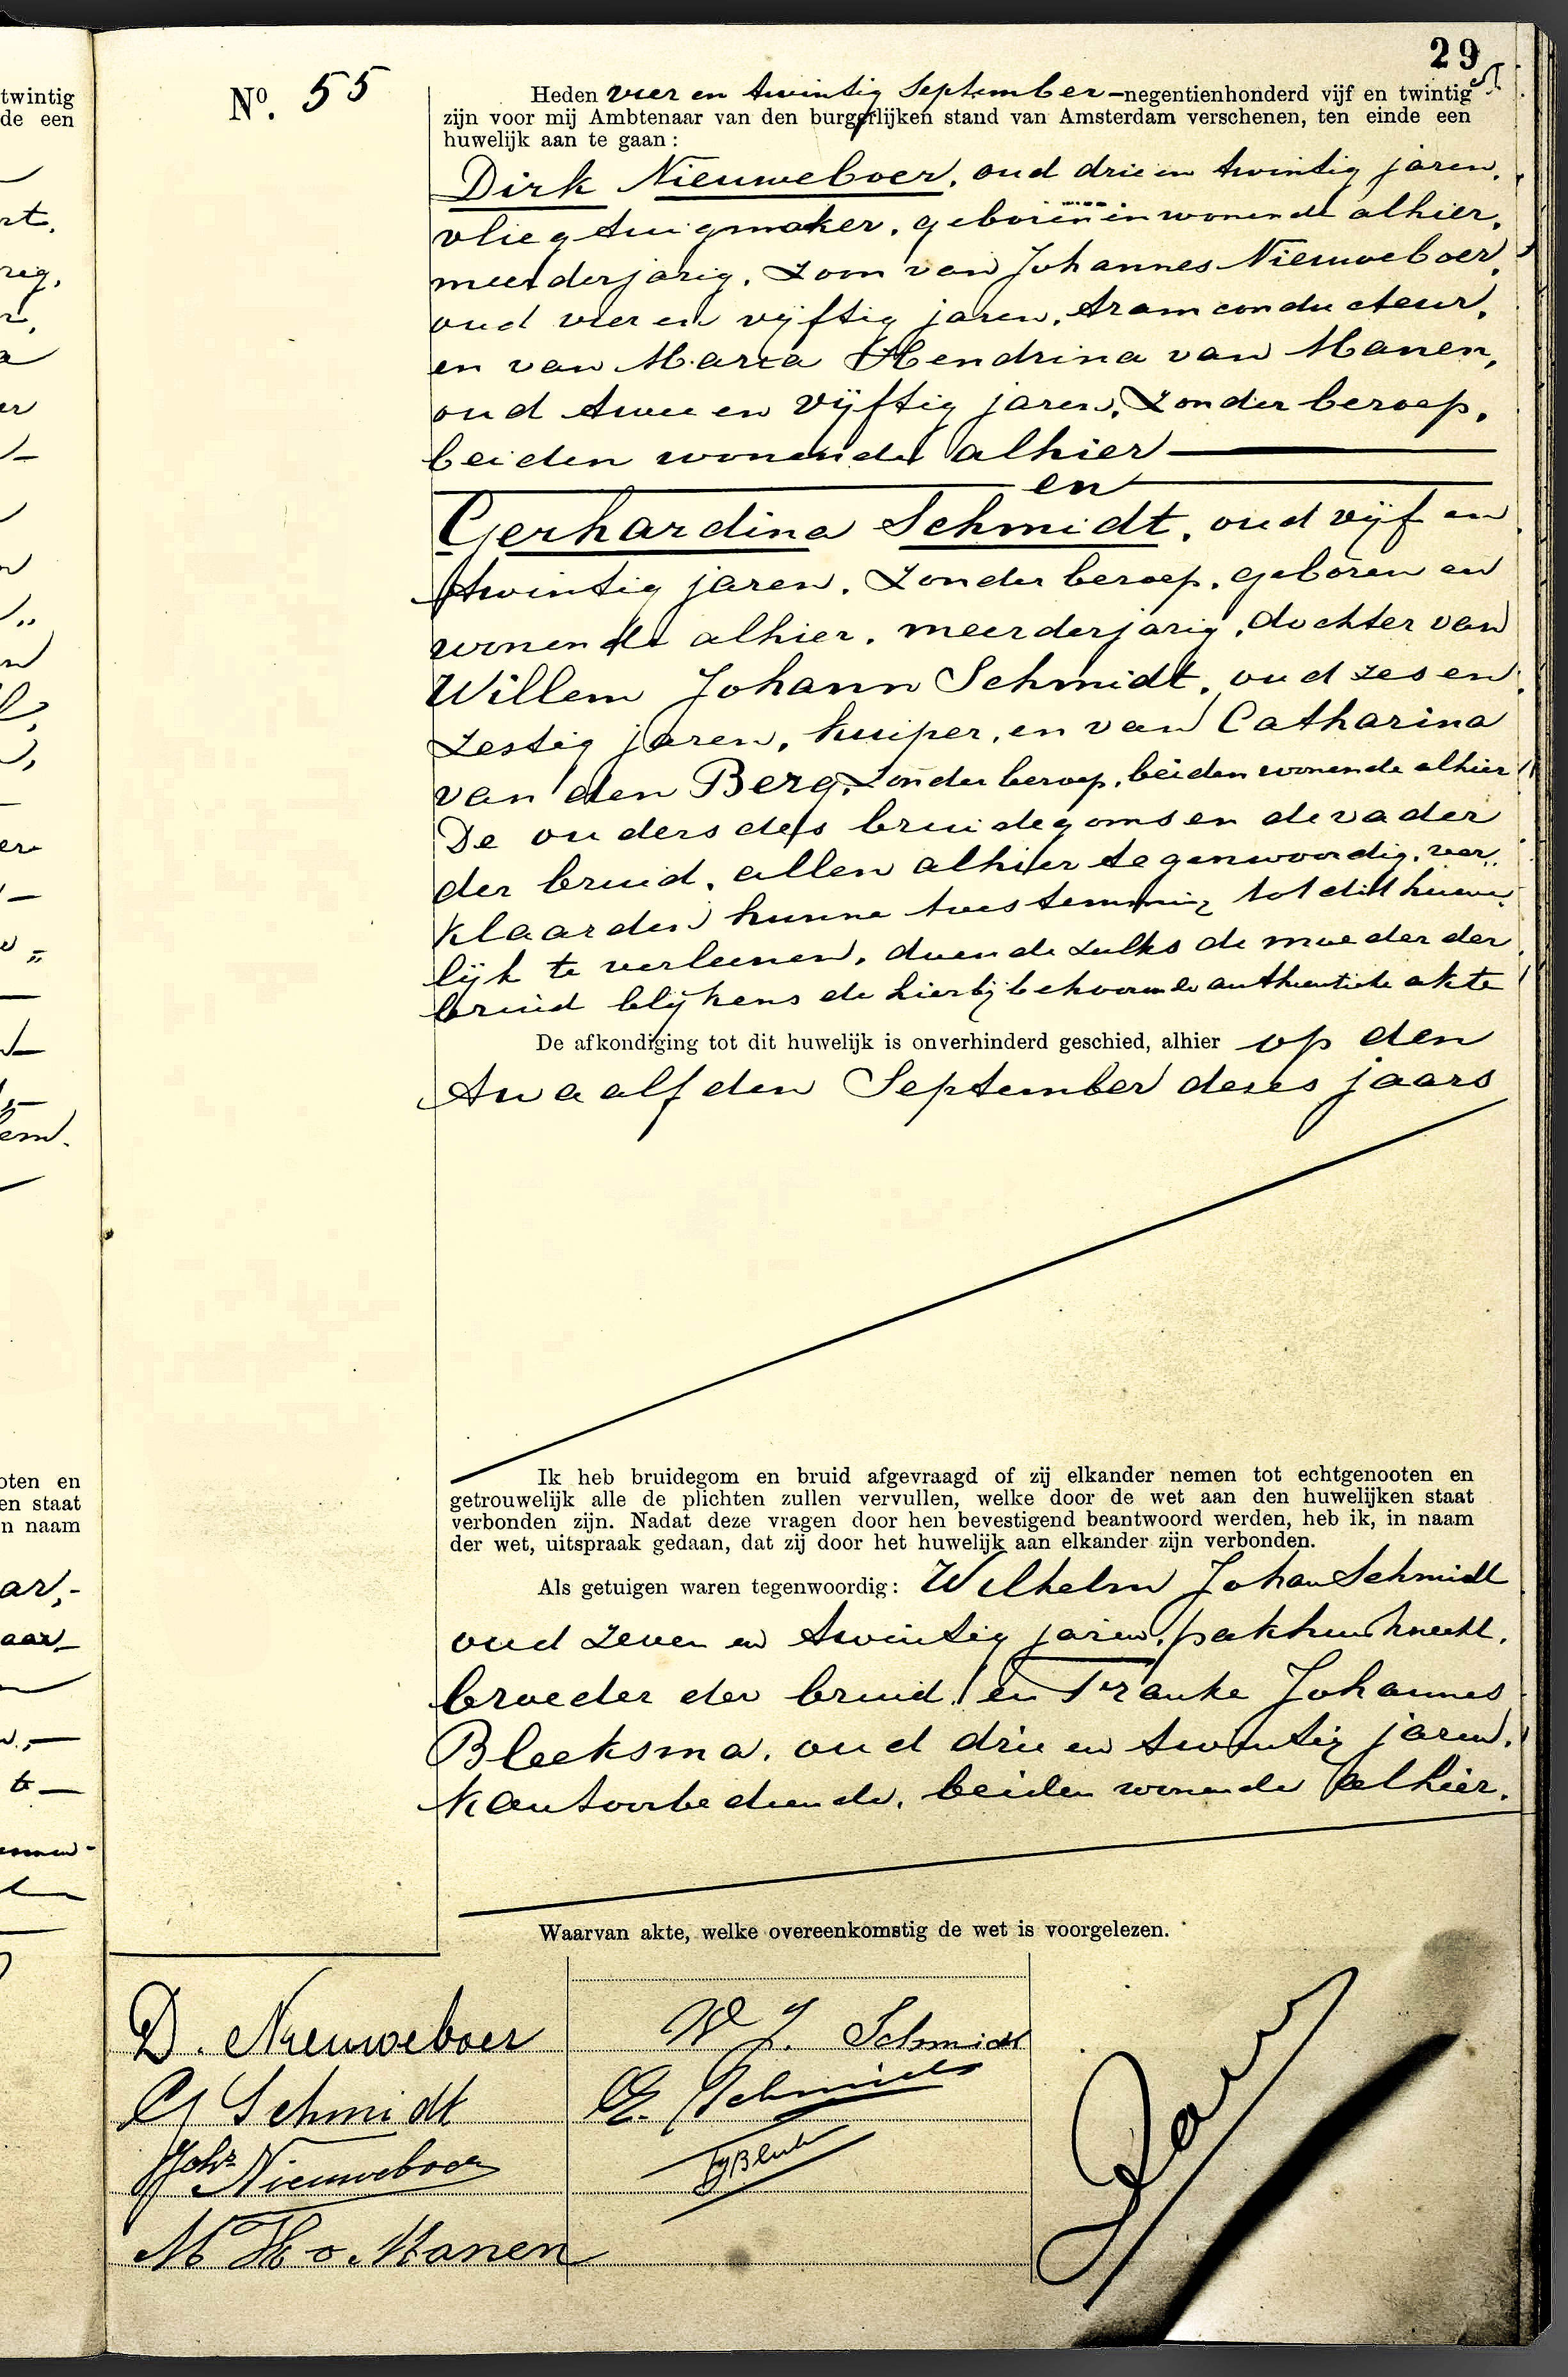 29
twintig
de een
No. 55
Heden vier en twintig September - negentienhonderd vijf en twintig
zijn voor mij Ambtenaar van den burgerlijken stand van Amsterdam verschenen, ten einde een
huwelijk aan te gaan:
Dirk Nieuweboer, oud drie en twintig jaren,
vliegtuigmaker, geboren en wonende alhier,
meerderjarig, zoon van Johannes Nieuweboer,
oud vier en vijftig jaren, tramconducteur,
en van Maria Hendrina van Manen,
oud twee en vijftig jaren, zonder beroep,
beiden wonende alhier
en
Gerhardina Schmidt, oud vijf en
twintig jaren, zonder beroep, geboren en
wonende alhier, meerderjarig, dochter van
Willem Johann Schmidt, oud zes en
zestig jaren, kuiper, en van Catharina
van den Berg, zonder beroep, beiden wonende alhier
De ouders des bruidegoms en de vader
der bruid, allen alhier tegenwoordig, ver„
klaarden hunne toestemming tot dit huwe„
lijk te verleenen, doende zulks de moeder der
bruid blijkens de hierbij behoorende authentieke akte
De afkondiging tot dit huwelijk is onverhinderd geschied, alhier op den
twaalfden September dezes jaars
oten en
en staat
n naam
Ik heb bruidegom en bruid afgevraagd of zij elkander nemen tot echtgenooten en
getrouwelijk alle de plichten zullen vervullen, welke door de wet aan den huwelijken staat
verbonden zijn. Nadat deze vragen door hen bevestigend beantwoord werden, heb ik, in naam
der wet, uitspraak gedaan, dat zij door het huwelijk aan elkander zijn verbonden.
Als getuigen waren tegenwoordig: Wilhelm Johan Schmidt
oud zeven en twintig jaren, pakhuisknecht,
broeder der bruid, en Franke Johannes
Bleeksma, oud drie en twintig jaren,
kantoorbediende, beiden wonende alhier.
Waarvan akte, welke overeenkomstig de wet is voorgelezen.
D. Nieuweboer
G Schmidt
Johs Nieuweboer
M H v. Manen
W J. Schmidt
Schmidt